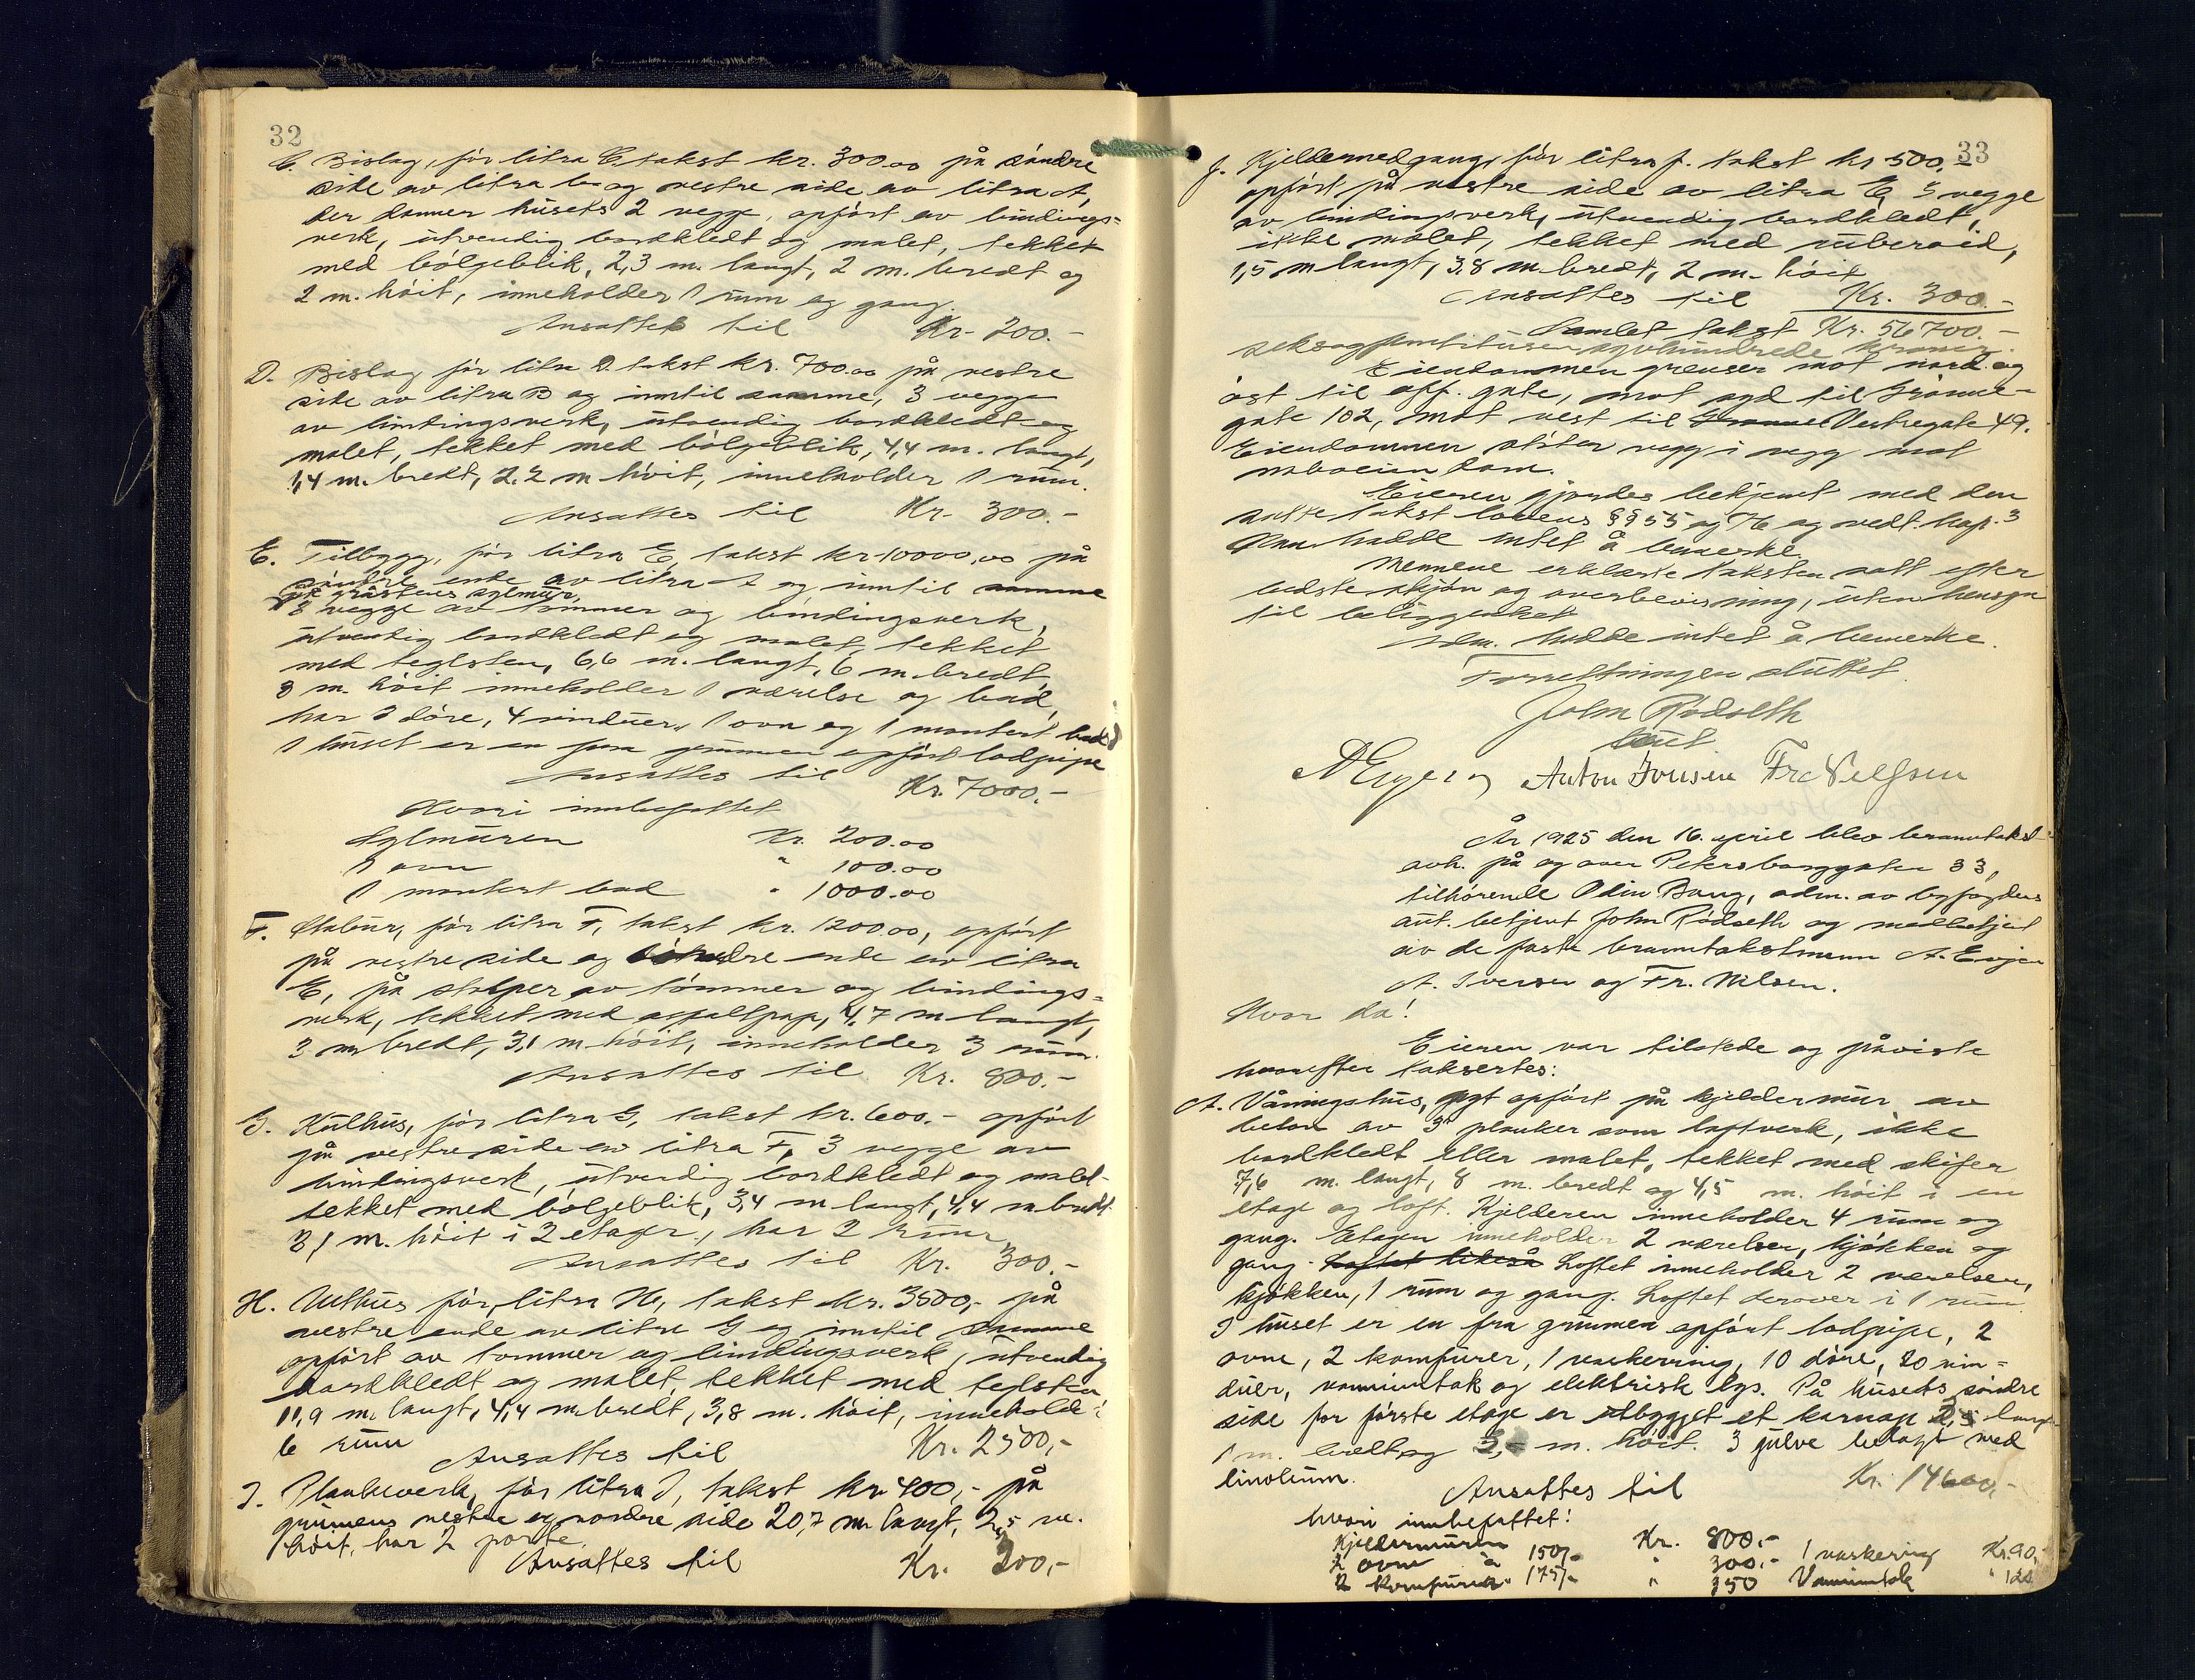 32
C. Bislag, før litra C. takst kr. 300.00 på søndre
side av litra B og vestre side av litra A,
der danner husets 2 vegge, opført av bindings=
verk, utvendig bordkledt og malet, tekket
med bølgeblik, 2,3 m. langt, 2 m. bredt og
2 m. høit, inneholder 1 rum og gang.
Ansattes til Kr. 200.-
D. Bislag før litra D takst kr. 700.00 på vestre
side av litra B og inntil samme, 3 vegge
av bindingsverk, utvendig bordkledt og
malet, tekket med bølgeblik, 4,4 m. langt,
1,4 m. bredt, 2,2 m høit, inneholder 1 rum.
Ansattes til Kr. 300.-
E. Tilbygg, før litra E, takst kr. 10000,00 på
søndre ende av litra A og inntil samme
på gråstens sylmur,
3 vegge av tømmer og bindingsverk,
utvendig bordkledt og malet, tekket
med teglsten, 6,6 m. langt, 6 m. bredt,
3 m. høit inneholder 1 værelse og bad,
har 3 døre, 4 vinduer, 1 ovn og 1 montert bad
I huset er en fra grunnen opført lodpipe
Ansattes til Kr. 7000.-
Hvori innbefattet
Sylmuren Kr. 200.00
1 ovn " 100.00
1 montert bad " 1000.00
F. Stabur, før litra F, takst kr. 1200.00, opført
på vestre side og søndre ende av litra
E, på stolper av tømmer og bindings=
verk, tekket med asfaltpap, 4,7 m langt,
3 m bredt, 3,1 m høit, inneholder 3 rum.
Ansattes til Kr. 800.-
G. Kulhus, før litra G, takst kr. 600.- opført
på vestre side av litra F, 3 vegge av
bindingsverk, utvendig bordkledt og malet
tekket med bølgeblik, 3,4 m langt, 4,4 m bredt
3,1 m. høit i 2 etager, har 2 rum
Ansattes til Kr. 300.-
H. Uthus før litra H, takst kr. 3500,- på
vestre ende av litra G og inntil samme
opført av tømmer og bindingsverk, utvendig
bordkledt og malet, tekket med teglsten
11,9 m. langt, 4,4 m bredt, 3,8 m. høit, inneholder
6 rum
Ansattes til Kr. 2500,-
I. Plankeverk, før litra I, takst kr 400,- på
grunnens vestre og nordre side 20,7 m langt, 2,5 m.
høit, har 2 porte.
Ansattes til Kr. 200,-
33
J. Kjeldernedgang, før litra J. takst kr 500,-
opført på vestre side av litra E, 3 vegge
av bindingsverk, utvendig bordkledt,
ikke malet, tekket med ruberoid,
1,5 m langt, 3,8 m bredt, 2 m. høit
Ansattes til Kr. 300.-
Samlet takst Kr. 56700.-
seksogfemtitusen syvhundrede kroner.
Eiendommen grenser mot nord og
øst til off. gate, mot syd til Grønne=
gate 102, mot vest til Vestregate 49.
Eiendommen støter vegg i vegg mot
naboeiendom.
Eieren gjordes bekjent med den
satte takst lovens §§ 55 og 76 og vedt. kap. 3
Han hadde intet å bemerke.
Mennene erklærte taksten satt efter
bedste skjøn og overbevisning, uten hensyn
til beliggenhet
Adm. hadde intet å bemerke.
Forretningen sluttet.
John Rødseth
aut.
A Evjen Anton Iversen Fr. Nilsen
År 1925 den 16. april blev branntakst
avh. på og over Petersborggaten 33,
tilhørende Odin Bang, adm. av byfogdens
aut. betjent John Rødseth og medbetjent
av de faste branntakstmenn A. Evjen
A. Iversen og Fr. Nilsen.
Hvor da!
Eieren var tilstede og påviste
hvorefter taksertes:
A. Våningshus, nyt opført på kjeldermur av
beton av 3" planker som laftverk, ikke
bordkledt eller malet, tekket med skifer
7,6 m. langt, 8 m. bredt og 4,5 m. høit i en
etage og loft. Kjelderen inneholder 4 rum og
gang. Etagen inneholder 2 værelser, kjøkken og
gang. Loftet likeså Loftet inneholder 2 værelser,
kjøkken, 1 rum og gang. Loftet derover i 1 rum.
I huset er en fra grunnen opført lodpipe, 2
ovne, 2 komfurer, 1 vaskering, 10 døre, 20 vin=
duer, vannuntak og elektrisk lys. På husets søndre
side for første etage er utbygget et karnap 2,5 langt
1 m. bredt og m. høit. 3 gulve belagt med
linolium.
Ansattes til Kr. 14600,-
hvori innbefattet:
Kjeldermuren Kr. 800,-
2 ovne à 150/- " 300,- 1 vaskering Kr. 90,-
2 komfurer " 175/- " 350 Vannuntak " 120